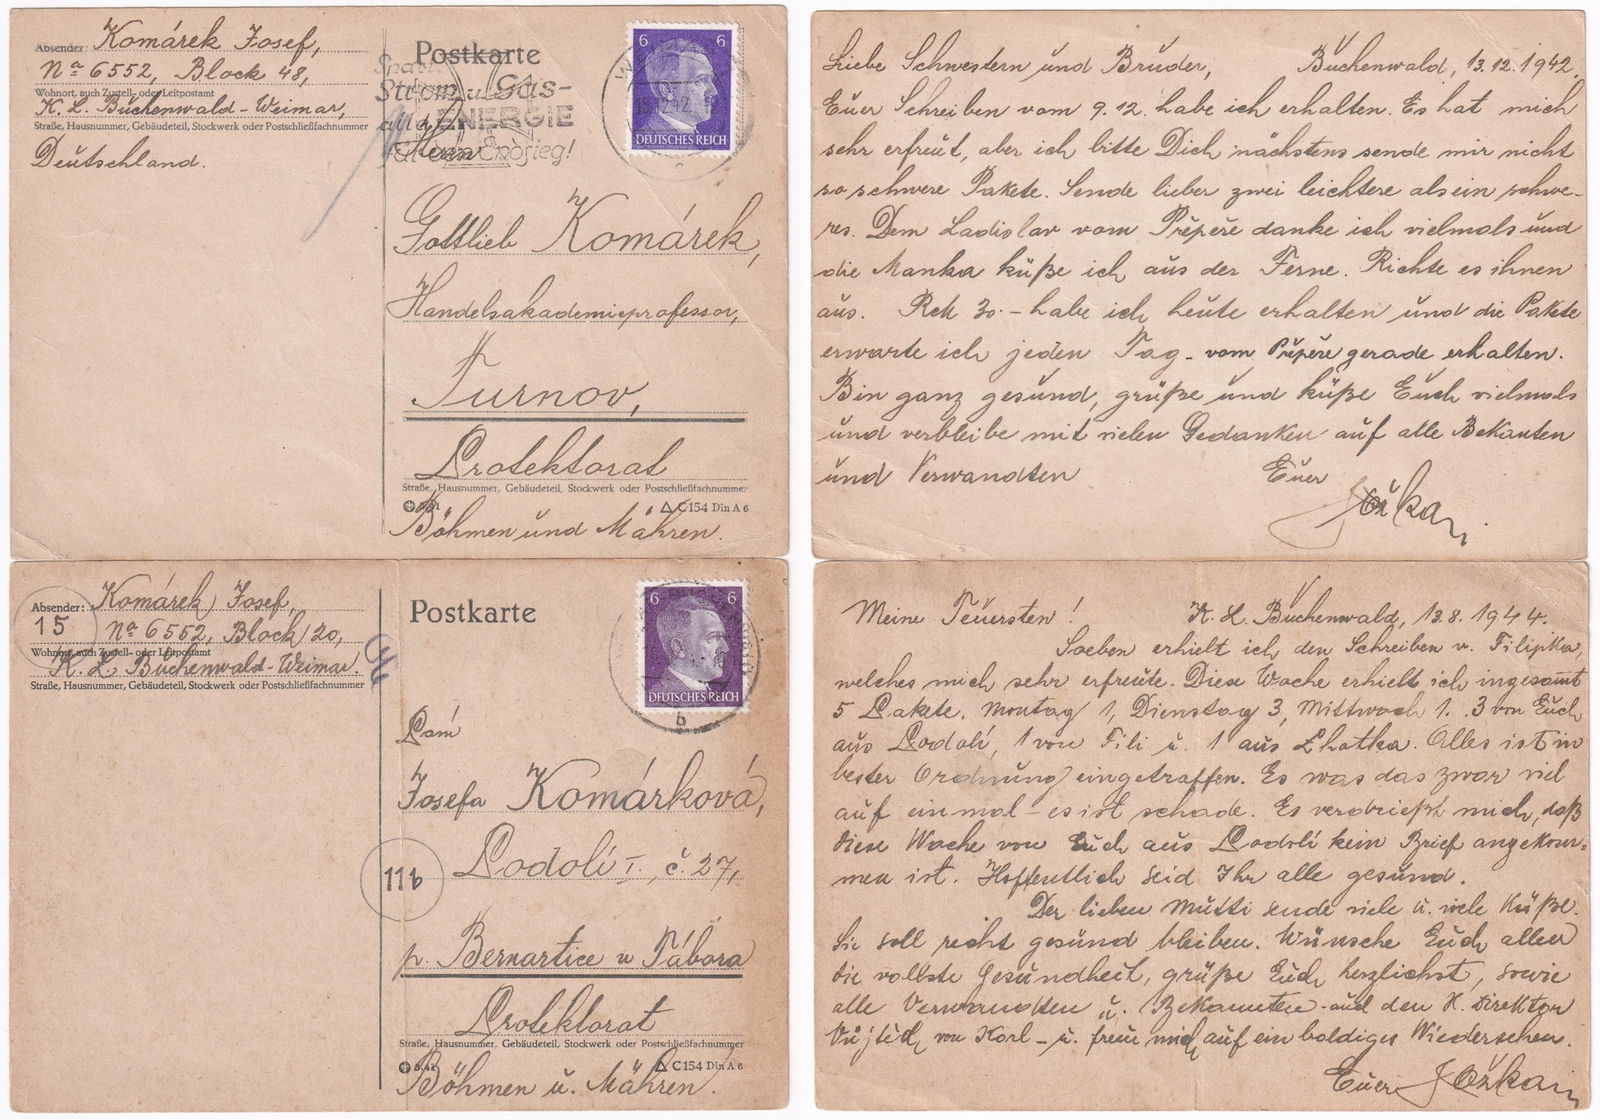 Absender: Komárek Josef,
Nº 6552, Block 48,
Wohnort, auch Zustell- oder Leitpostamt
K. L. Buchenwald-Weimar,
Straße, Hausnummer, Gebäudeteil, Stockwerk oder Postschließfachnummer
Deutschland.
Postkarte
Strom u. Gas-
ENERGIE
Endsieg!
6 6
DEUTSCHES REICH
Herrn
Gottlieb Komárek,
Handelsakademieprofessor,
Turnov,
Protektorat
Straße, Hausnummer, Gebäudeteil, Stockwerk oder Postschließfachnummer
C154 Din A 6
Böhmen und Mähren.
Liebe Schwestern und Brüder, Buchenwald, 13.12.1942.
Euer Schreiben vom 9.12. habe ich erhalten. Es hat mich
sehr erfreut, aber ich bitte Dich nächstens sende mir nicht
so schwere Pakete. Sende lieber zwei leichtere als ein schwe-
res. Dem Ladislav vom Prěpěre danke ich vielmals und
die Manka küße ich aus der Ferne. Richte es ihnen
aus. 30.- habe ich heute erhalten und die Pakete
erwarte ich jeden Tag - vom Prěpěre gerade erhalten.
Bin ganz gesund, grüße und küße Euch vielmals
und verbleibe mit vielen Gedanken auf alle Bekanten
und Verwandten Euer
Jožka
Absender: Komárek Josef,
15
Nº 6552, Block 20,
Wohnort, auch Zustell- oder Leitpostamt
K. L. Buchenwald-Weimar.
Straße, Hausnummer, Gebäudeteil, Stockwerk oder Postschließfachnummer
Postkarte
6 6
DEUTSCHES REICH
b
Pám
Josefa Komárková,
Podolí I., č. 27,
11b
p. Bernartice u Tábora
Protektorat
Straße, Hausnummer, Gebäudeteil, Stockwerk oder Postschließfachnummer
C154 Din A 6
Böhmen u. Mähren.
Meine Teuersten! K. L. Buchenwald, 13.8.1944.
Soeben erhielt ich den Schreiben v. Filipka,
welches mich sehr erfreute. Diese Woche erhielt ich ingesamt
5 Pakete. Montag 1, Dienstag 3, Mittwoch 1. 3 von Euch
aus Podolí, 1 von Fili u. 1 aus Lhotka. Alles ist in
bester Ordnung eingetraffen. Es was das zwar viel
auf einmal - es ist schade. Es verdrießt mich, daß
diese Woche von Euch aus Podolí kein Brief angekom-
men ist. Hoffentlich seid Ihr alle gesund.
Der lieben Mutti sende viele u. viele Küße.
Sie soll recht gesund bleiben. Wünsche Euch allen
die vollste Gesundheit, grüße Euch herzlichst, sowie
alle Verwandten u. Bekannten und den H. Direktor
von Karl - u. freue mich auf ein baldiges Wiedersehen.
Euer Jožka